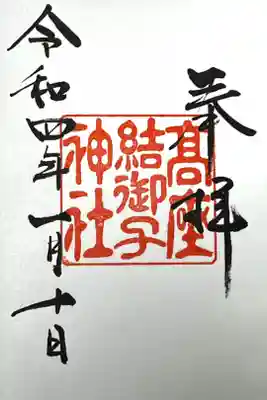 奉拝
高座
結御子
神社
令和四年一月十日